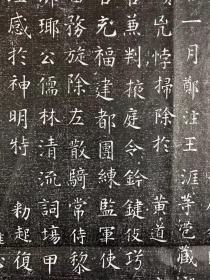 一月鄭注王涯等苞藏
兇悖掃除於 黃道
兼判掖庭令鈐鍵
充福建都團練監軍使
務旋除左散騎常侍黎
琊公儒林清流詞場甲
感於神明特 勑起復